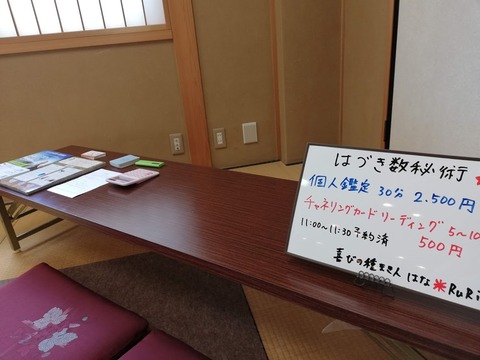 はづき数秘術
個人鑑定 30分 2.500円
チャネリングカードリーディング 5~10
500円
11:00~11:30 予約済
喜びの種まき人 はな RuRi